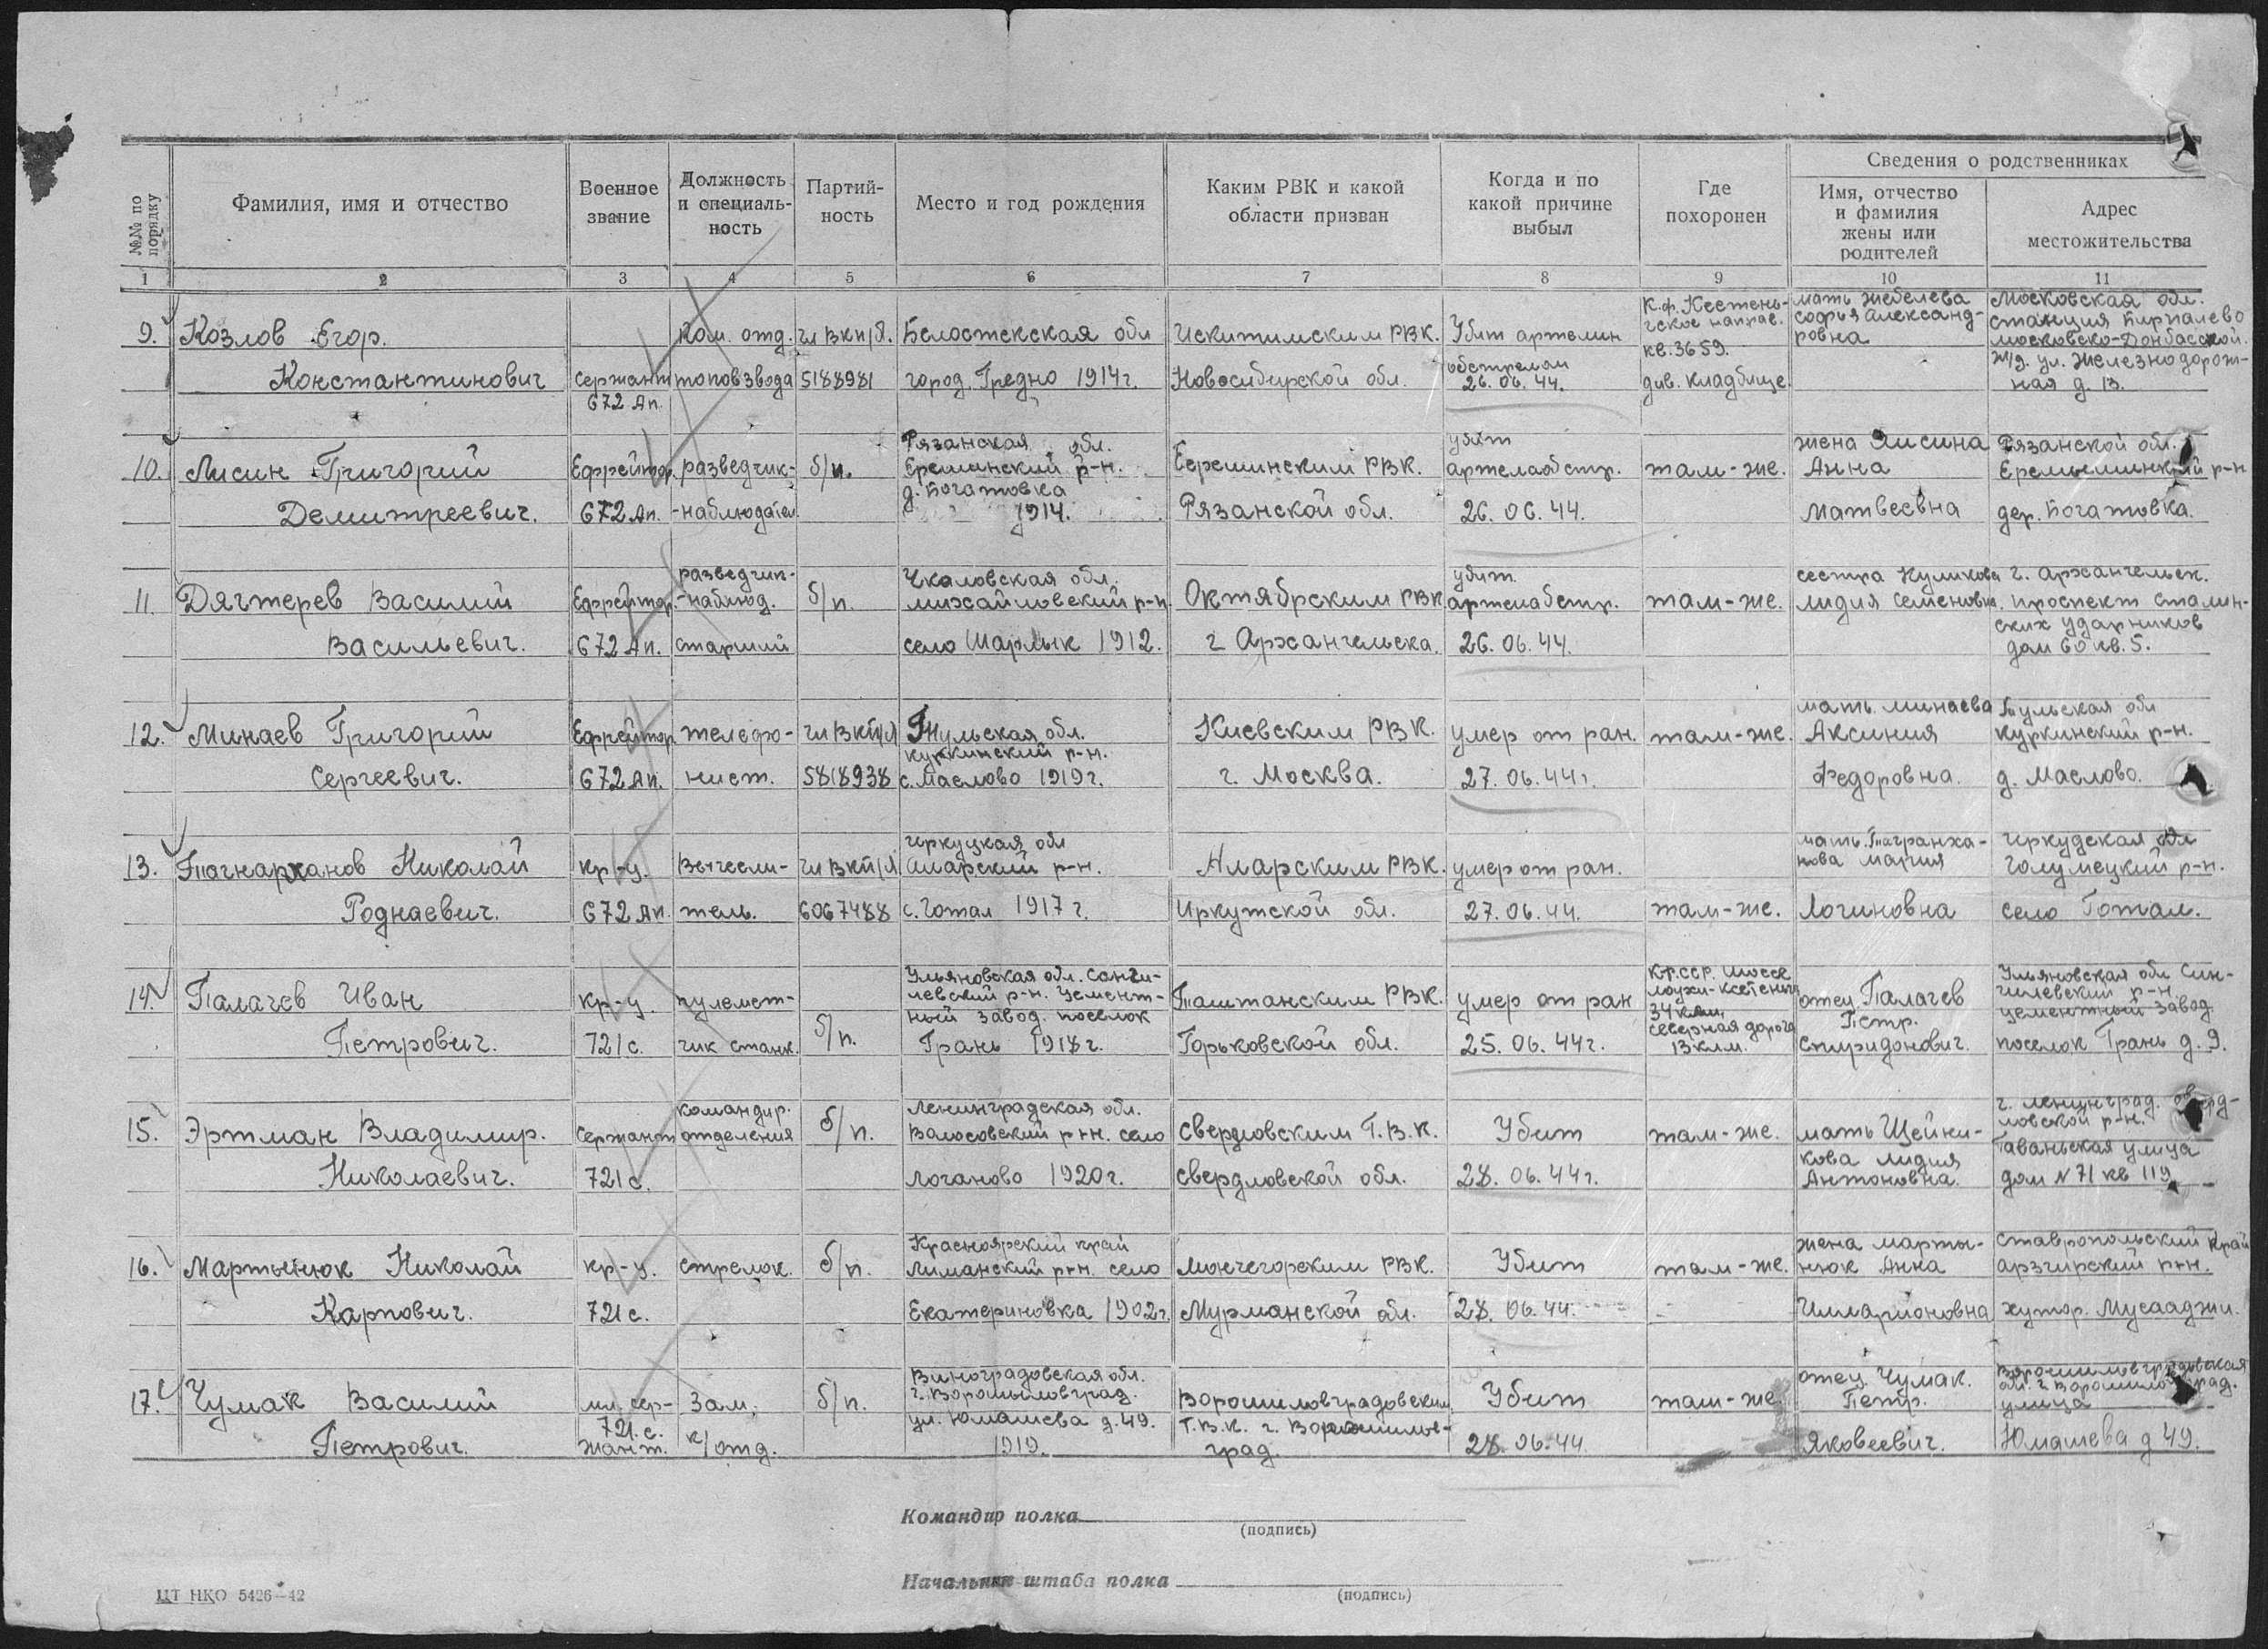 №№ по порядку
Фамилия, имя и отчество
Военное звание
Должность и специальность
Партийность
Место и год рождения
Каким РВК и какой области призван
Когда и по какой причине выбыл
Где похоронен
Сведения о родственниках
Имя, отчество и фамилия жены или родителей
Адрес местожительства
1 2 3 4 5 6 7 8 9 10 11
9. Козлов Егор.
Константинович
Сержант
672 Ап.
Ком. отд.
топовзвода
чл ВКП/б.
5188981
Белостекская обл
город. Гредно 1914г.
Искитимским РВК.
Новосибирской обл.
Убит артелин
обстрелом
26. 06. 44.
К.ф. Кестень-
гское направ.
кв. 3659.
див. кладбище.
мать Жебелева
Софья Александ-
ровна
Московская обл.
станция
Московско-Донбасской.
ж/д. ул. Железнодорож-
ная д. 13.
10. Лисин Григорий
Демитреевич.
Ефрейтор.
672 Ап.
разведчик-
-наблюдател
б/п.
Рязанская обл.
р-н.
д. Богатовка
1914.
РВК.
Рязанской обл.
убит
артелаобстр.
26. 06. 44.
там-же.
жена Лисина
Анна
Матвеевна
Рязанской обл.
р-н
дер. Богатовка.
11. Дягтерев Василий
Васильевич.
Ефрейтор.
672 Ап.
разведчик-
-наблюд.
старший
б/п.
Чкаловская обл.
Михайловский р-н
село Шарлык 1912.
Октябрским РВК
г Архангельска.
убит
артелабстр.
26. 06. 44.
там-же.
сестра Куликова
Лидия Семеновна.
г. Архангельск.
проспект Сталин-
ских ударников
дом 60 кв. 5.
12. Минаев Григорий
Сергеевич.
Ефрейтор
672 Ап.
телефо-
нист.
чл ВКП/б/
5818938
Тульская обл.
Куркинский р-н.
с. Маслово 1919г.
Киевским РВК.
г. Москва.
умер от ран.
27. 06. 44г.
там-же.
мать Минаева
Аксиния
Федоровна.
Тульская обл
Куркинский р-н.
д. Маслово.
13. Тагнарханов Николай
Роднаевич.
кр-ц.
672 Ап.
Вычесли-
тель.
чл ВКП/б/
6067488
Иркуцкая обл
Аларский р-н.
с. Готал 1917 г.
Аларским РВК.
Иркутской обл.
умер от ран.
27. 06. 44.
там-же.
мать. Тагранха-
нова Мария
Логиновна
Иркудская обл
Голумецкий р-н.
село Готал.
14. Палачев Иван
Петрович.
кр-ц.
721 с.
пулемет-
чик станк.
б/п.
Ульяновская обл. Сенги-
левский р-н. Цемент-
ный завод. поселок
Грань 1918 г.
РВК.
Горьковской обл.
умер от ран
25. 06. 44г.
КФССР. шоссе
Лоухи-Кестеньга
34 клм.
северная дорога
13 клм.
отец Палачев
Петр.
Спиридонович.
Ульяновская обл Син-
гилевский р-н
цементный завод.
поселок Грань д. 9.
15. Эртман Владимир.
Николаевич.
Сержант
721 с.
командир.
отделения
б/п.
Ленинградская обл.
Валосовский р-н. село
Логаново 1920г.
Свердловским Г.В.К.
Свердловской обл.
Убит
28. 06. 44г.
там-же.
мать Щейни-
кова Лидия
Антоновна.
г. Ленинград. Сверд-
ловской р-н.
Гаваньская улица
дом №71 кв 119
16. Мартынюк Николай
Карпович.
кр-ц.
721 с.
стрелок.
б/п.
Красноярский край
Лиманский р-н. село
Екатериновка 1902г.
Мончегорским РВК.
Мурманской обл.
Убит
28. 06. 44.
там-же.
жена Марты-
нюк Анна
Илларионовна
Ставропольский край
Арзгирский р-н.
хутор. Мусааджи.
17. Чумак Василий
Петрович.
мл. сер-
721. с.
жант.
Зам.
к/отд.
б/п.
Виноградовская обл.
г. Ворошиловград.
ул. Юмашева д. 49.
1919.
Ворошиловградовским
Г.В.К. г. Ворошилов-
град.
Убит
28. 06. 44
там-же
отец. Чумак.
Петр.
Яковеевич.
Ворошиловградовская
обл. г. Ворошиловград.
улица
Юмашева д 49.
Командир полка
(подпись)
Начальник штаба полка
(подпись)
ЦТ НКО 5426—42